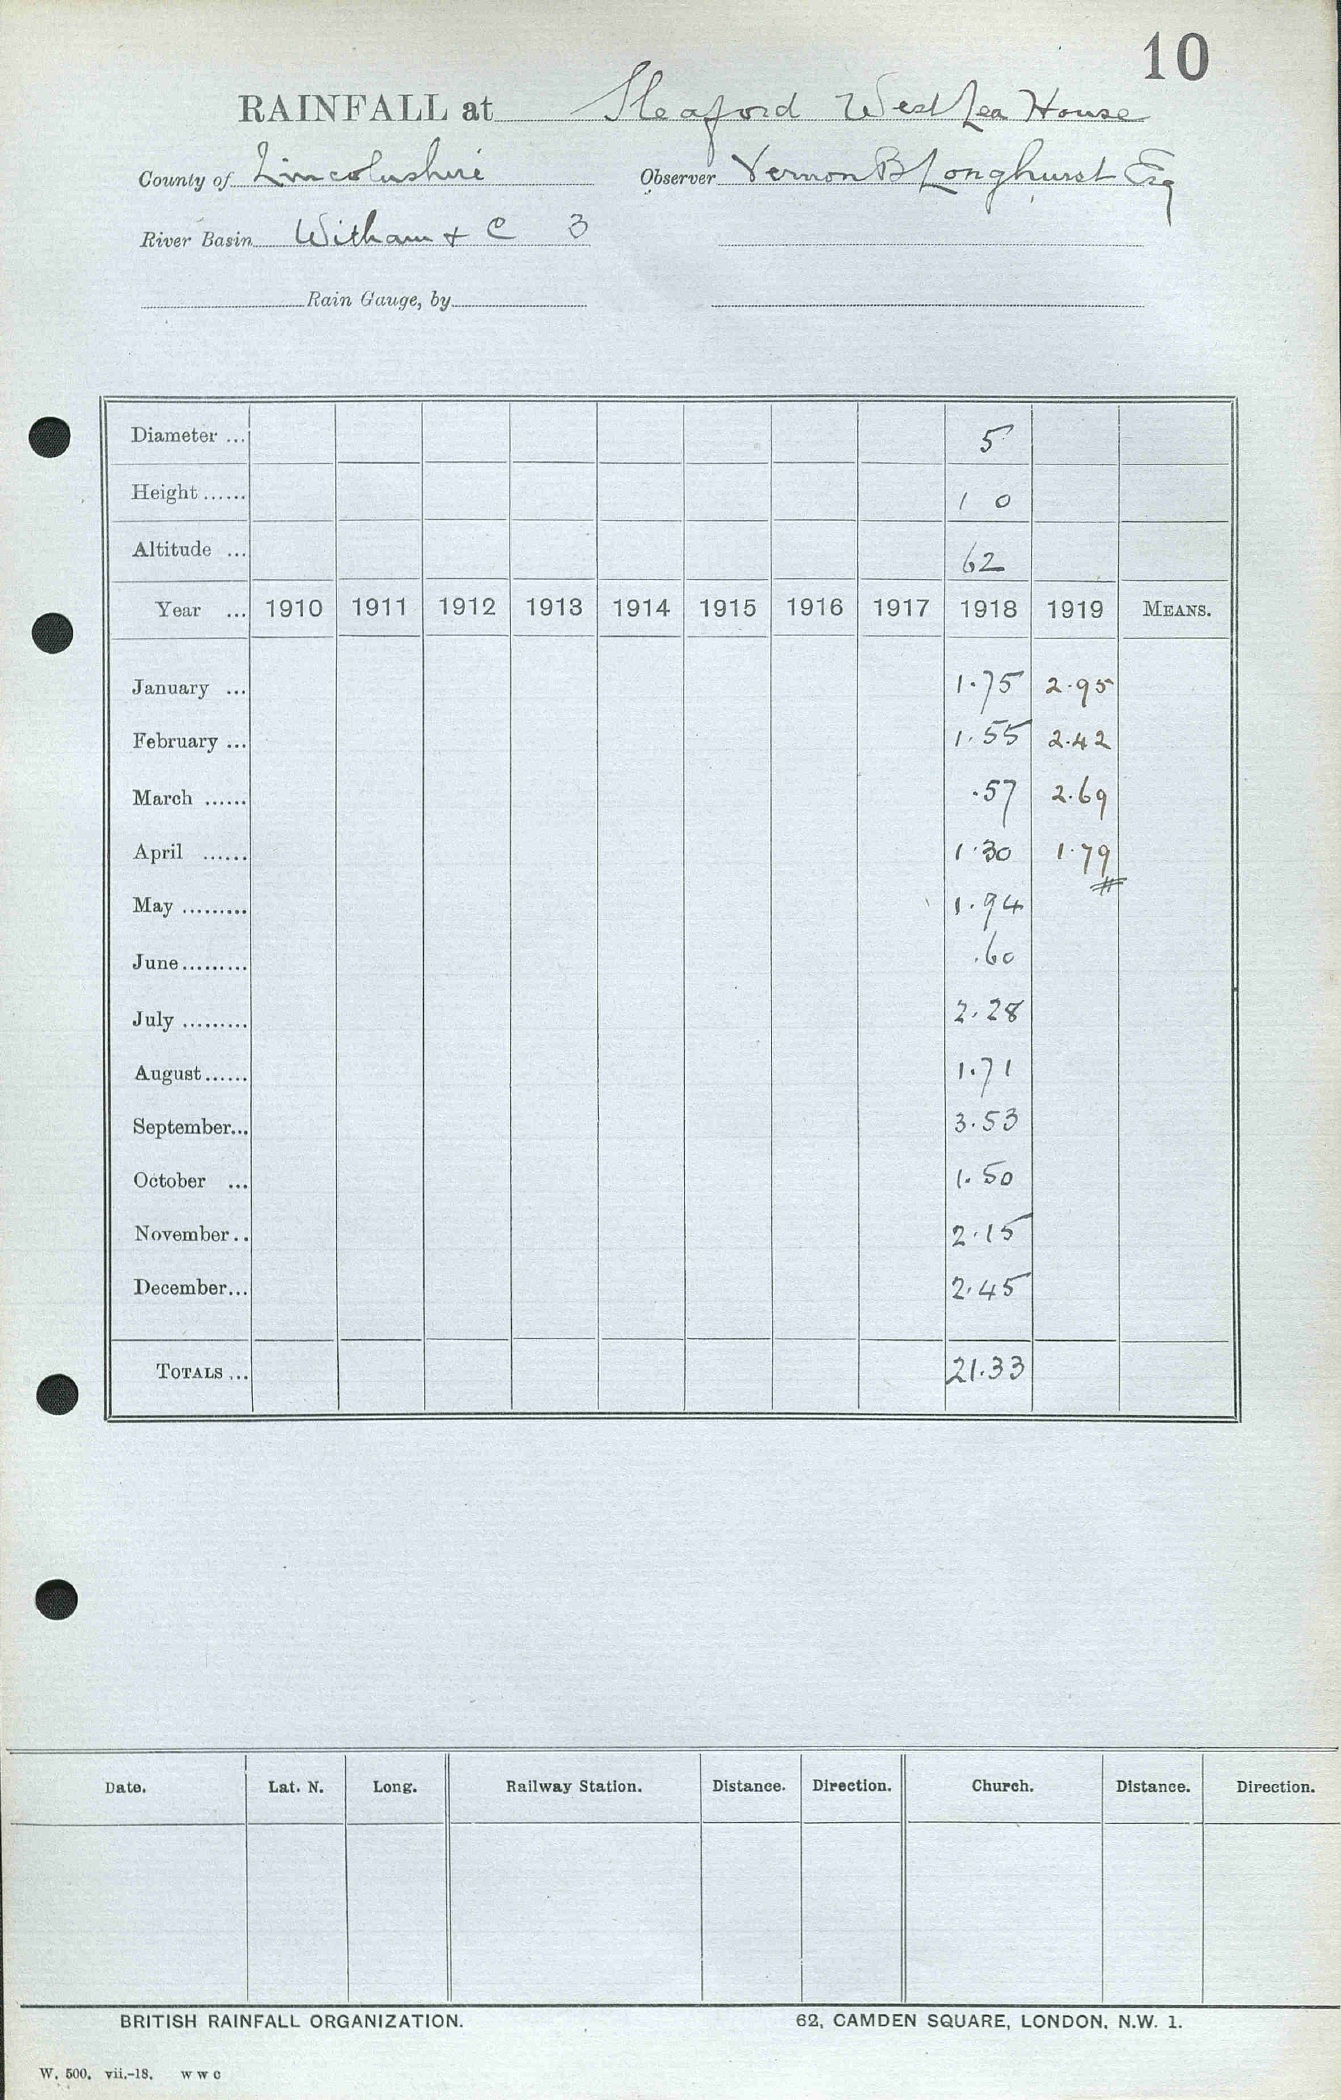 10
RAINFALL at Sleaford West Lea House
County of Lincolnshire Observer Vernon B Longhurst Esq
River Basin Witham & C 3
Rain Gauge, by
Diameter ... 5
Height ...... 1 0
Altitude ... 62
Year ... 1910 1911 1912 1913 1914 1915 1916 1917 1918 1919 MEANS.
January ... 1.75 2.95
February ... 1.55 2.42
March ...... .57 2.69
April ...... 1.30 1.79
May ......... 1.94
June ......... .60
July ......... 2.28
August ...... 1.71
September... 3.53
October ... 1.50
November .. 2.15
December... 2.45
TOTALS ... 21.33
Date. Lat. N. Long. Railway Station. Distance. Direction. Church. Distance. Direction.
BRITISH RAINFALL ORGANIZATION. 62, CAMDEN SQUARE, LONDON, N.W. 1.
W. 500. vii.-18. w w c